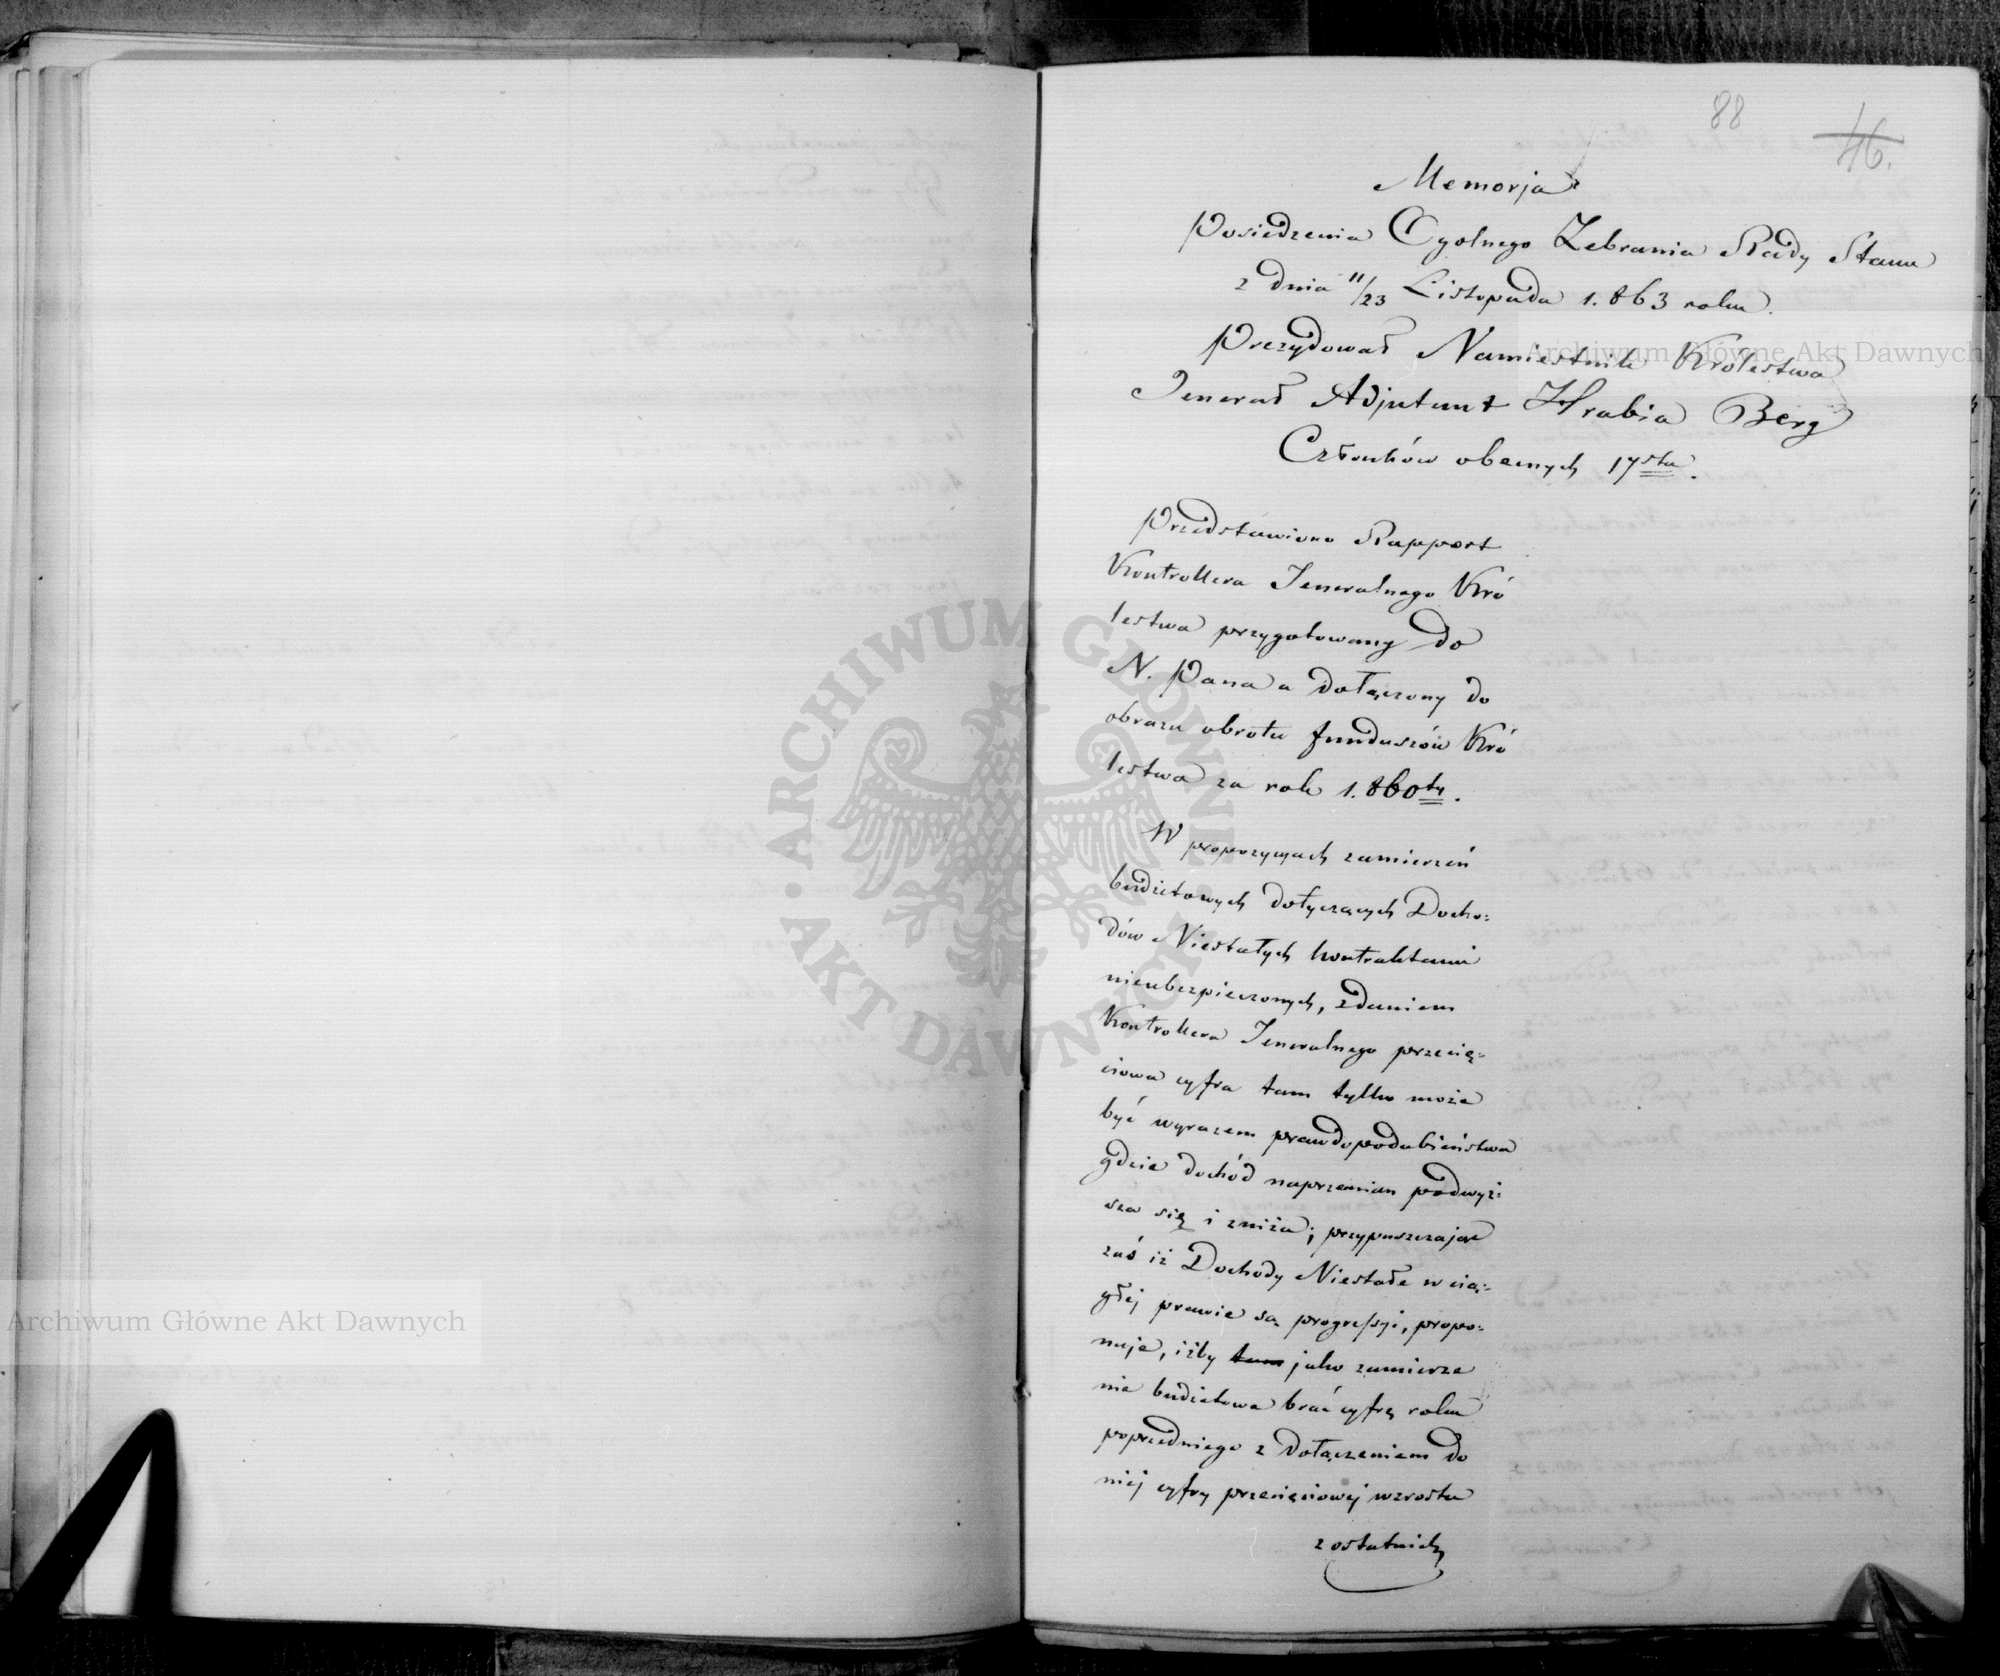 88
46.
Memorja
Posiedzenia Ogolnego Zebrania Rady Stanu
z dnia 11/23 Listopada 1.863 roku.
Prezydował Namiestnik Królestwa
Jenerał Adjutant Hrabia Berg
Członków obecnych 17stu.
Przedstawiono Rapport
Kontrollera Jeneralnego Kró
lestwa przygotowany do
N. Pana a dołączony do
obrazu obrotu funduszów Kró
lestwa za rok 1.860ty.
W propozycyach zamierzeń
budżetowych dotyczących Docho:
dów Niestałych kontraktami
nieubezpieczonych, zdaniem
Kontrollera Jeneralnego przecię:
ciowa cyfra tam tylko może
być wyrazem prawdopodobieństwa
gdzie dochód naprzemian podwyż:
sza się i zniża; przypuszczając
zaś iż Dochody Niestałe w cią:
głej prawie są progressyi, propo:
nuje, iżby tam jako zamierze
nie budżetowe brać cyfrę roku
poprzedniego z dołączeniem do
niej cyfry przecięciowej wzrostu
z ostatnich
Archiwum Główne Akt Dawnych
Archiwum Główne Akt Dawnych
ARCHIWUM GŁÓWNE AKT DAWNYCH